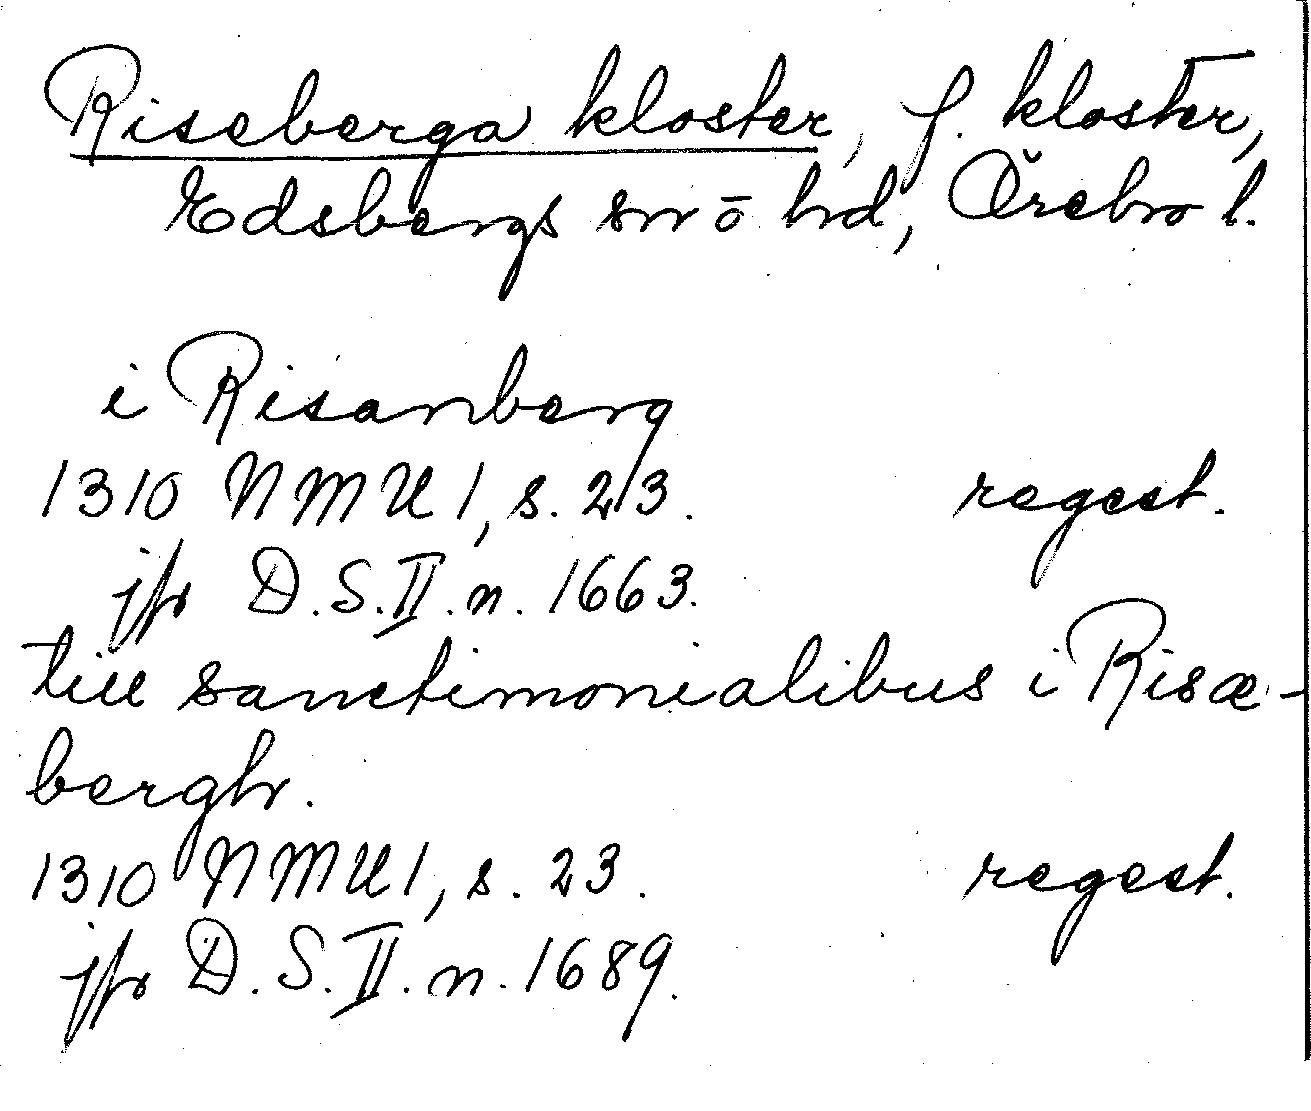 Riseberga kloster, f. kloster,
Edsbergs sn o hd, Örebro l.
i Risanberg
1310 NMU 1, s. 23. regest.
jfr D.S.II.n. 1663.
till sanctimonialibus i Risæ-
bergh.
1310 NMU 1, s. 23. regest.
jfr D.S.II.n. 1689.